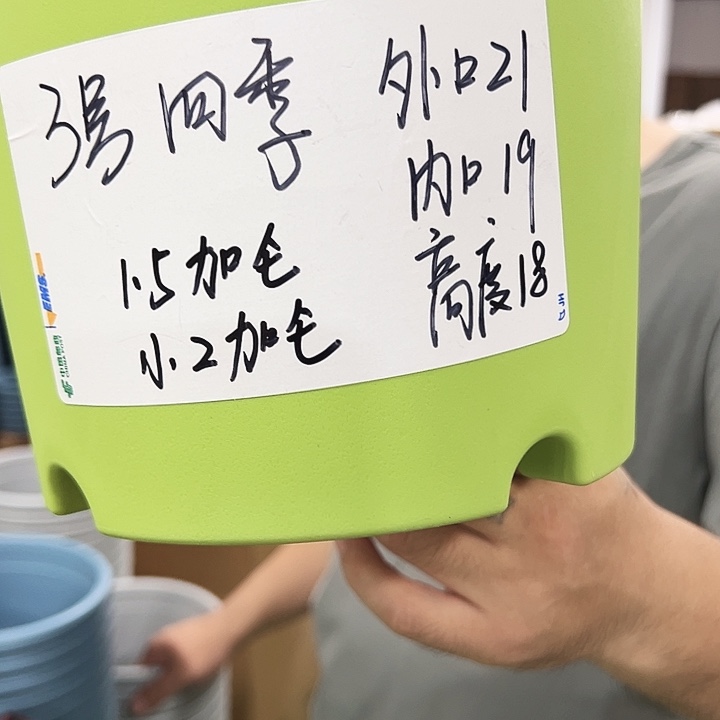 3号 四季
外口21
内口.19
高度18
1.5加仑
小.2加仑
EMS
中国邮政
CHINA POST